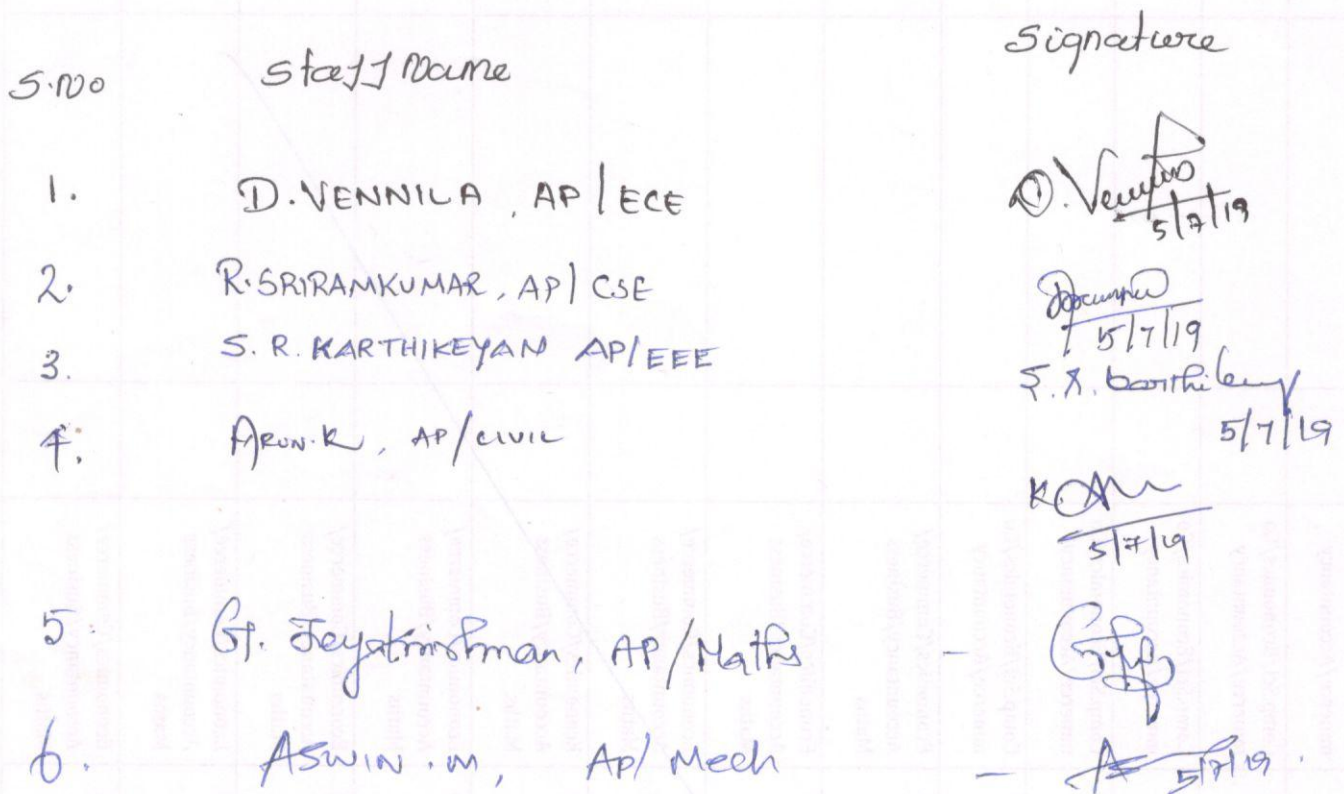 S.No Staff Name Signature
1. D. VENNILA, AP/ECE D. Vennila
5/7/19
2. R. SRIRAMKUMAR, AP/CSE
5/7/19
3. S. R. KARTHIKEYAN AP/EEE S. R. Karthikey
5/7/19
4. ARUN.K, AP/CIVIL
5/7/19
5. G. Jeyakrishnan, AP/Maths -
6. ASWIN.M, AP/Mech - 5/7/19.